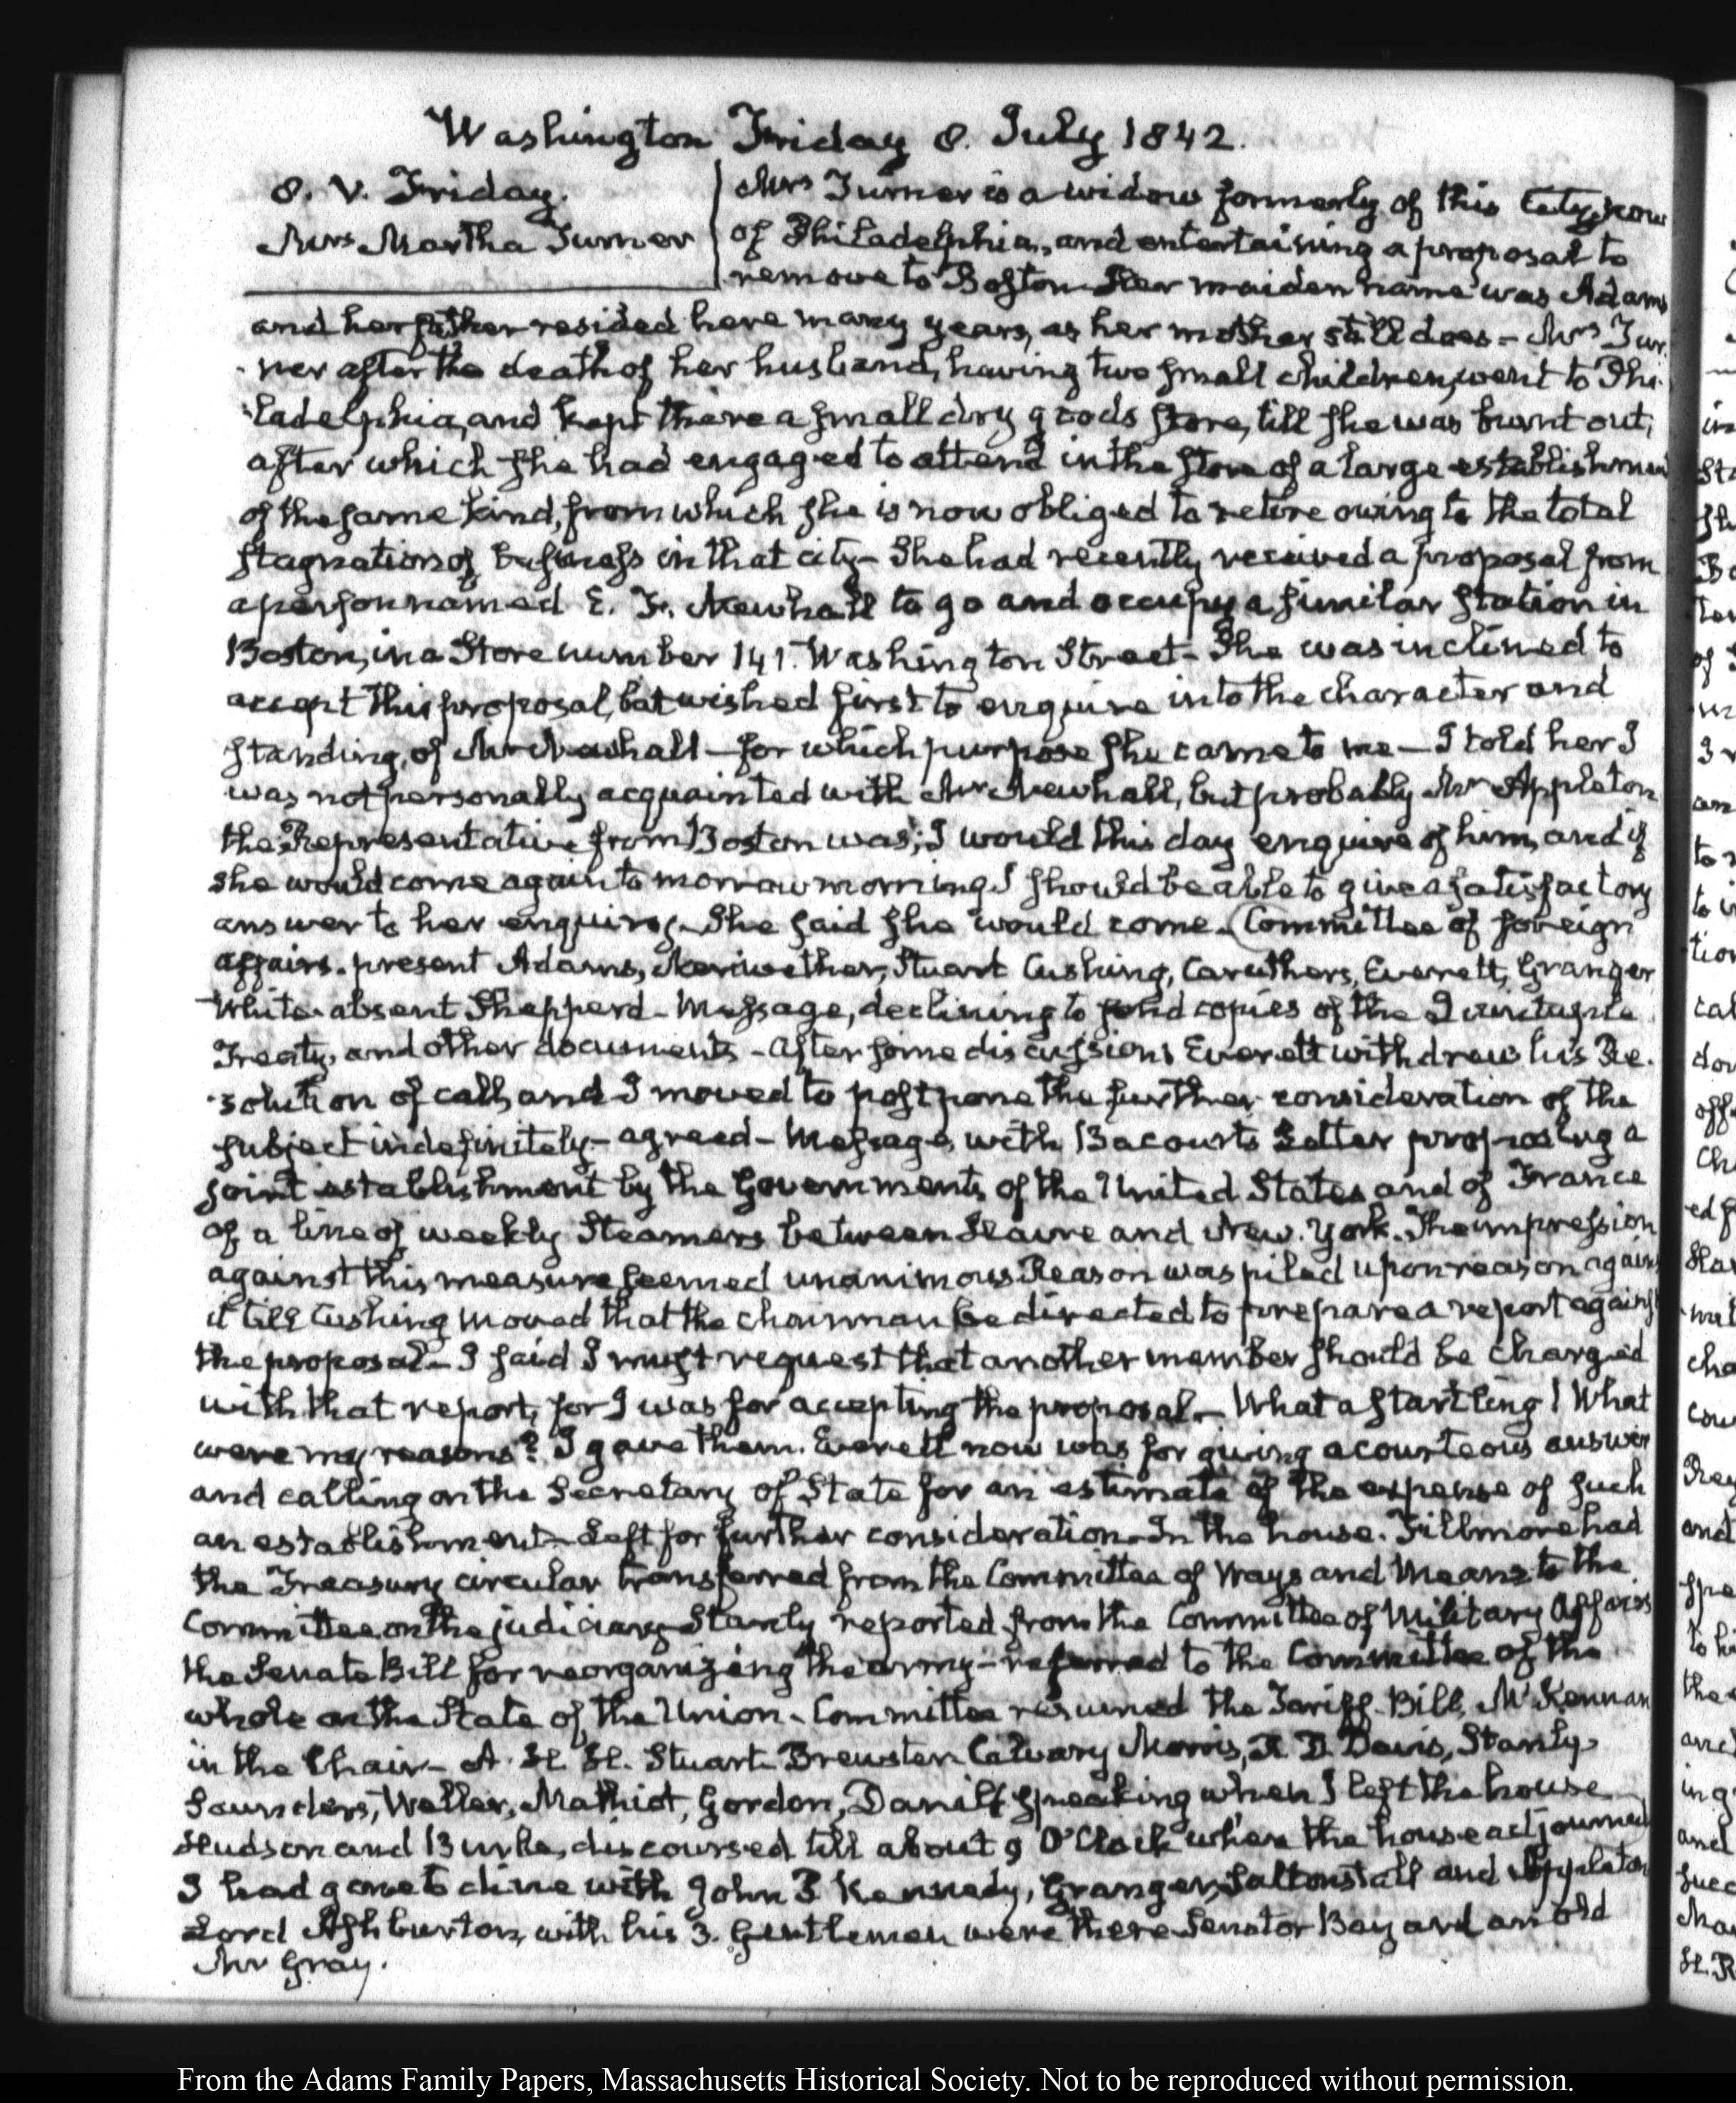 Washington Friday 8. July 1842.
8. V. Friday.
Mrs Martha Turner
Mrs Turner is a widow formerly of this City, now
of Philadelphia, and entertaining a proposal to
remove to Boston. Her maiden name was Adams
and her father resided here many years, as her mother still does - Mrs Tur-
-ner after the death of her husband, having two small children, went to Phi-
-ladelphia, and kept there a small dry goods store, till she was burnt out;
after which she had engaged to attend in the store of a large establishment
of the same kind, from which she is now obliged to retire owing to the total
stagnation of business in that city - She had recently received a proposal from
a person named E. F. Newhall to go and occupy a similar station in
Boston, in a Store number 141. Washington Street - She was inclined to
accept this proposal, but wished first to enquire into the character and
standing, of Mr Newhall - for which purpose she came to me - I told her I
was not personally acquainted with Mr Newhall, but probably Mr Appleton
the Representative from Boston was; I would this day enquire of him, and if
she would come again to morrow morning I should be able to give a satisfactory
answer to her enquiry. She said she would come. Committee of foreign
affairs. present Adams, Meriwether, Stuart Cushing, Caruthers, Everett, Granger
White. absent Shepperd - Message, declining to send copies of the Quintuple
Treaty, and other documents - After some discussion Everett withdrew his Re-
-solution of call, and I moved to postpone the further consideration of the
subject indefinitely - agreed - Message, with Bacourt's Letter proposing a
joint establishment by the Governments of the United States and of France
of a line of weekly Steamers between Havre and New-York. The impression
against this measure seemed unanimous Reason was piled upon reason against
it till Cushing moved that the chairman be directed to prepare a report against
the proposal - I said I must request that another member should be charged
with that report, for I was for accepting the proposal. - What a startling! What
were my reasons? I gave them. Everett now was for giving a courteous answer
and calling on the Secretary of State for an estimate of the expense of such
an establishment - Left for further consideration - In the house. Fillmore had
the Treasury circular transferred from the Committee of Ways and Means to the
Committee on the judiciary - Stanly reported from the Committee of Military Affairs
the Senate Bill for reorganizing the army - referred to the Committee of the
whole on the State of the Union. Committee resumed the Tariff-Bill, McKennan
in the Chair - A. H. H. Stuart Brewster Calvary Morris, R. D. Davis, Stanly
Saunders, Weller, Mathiot, Gordon, Daniel speaking when I left the house
Hudson and Burke, discoursed till about 9 O'Clock when the house adjourned
I had gone to dine with John P Kennedy, Granger, Saltonstall and Appleton
Lord Ashburton, with his 3. Gentlemen were there Senator Bayard an old
Mr Gray.
From the Adams Family Papers, Massachusetts Historical Society. Not to be reproduced without permission.